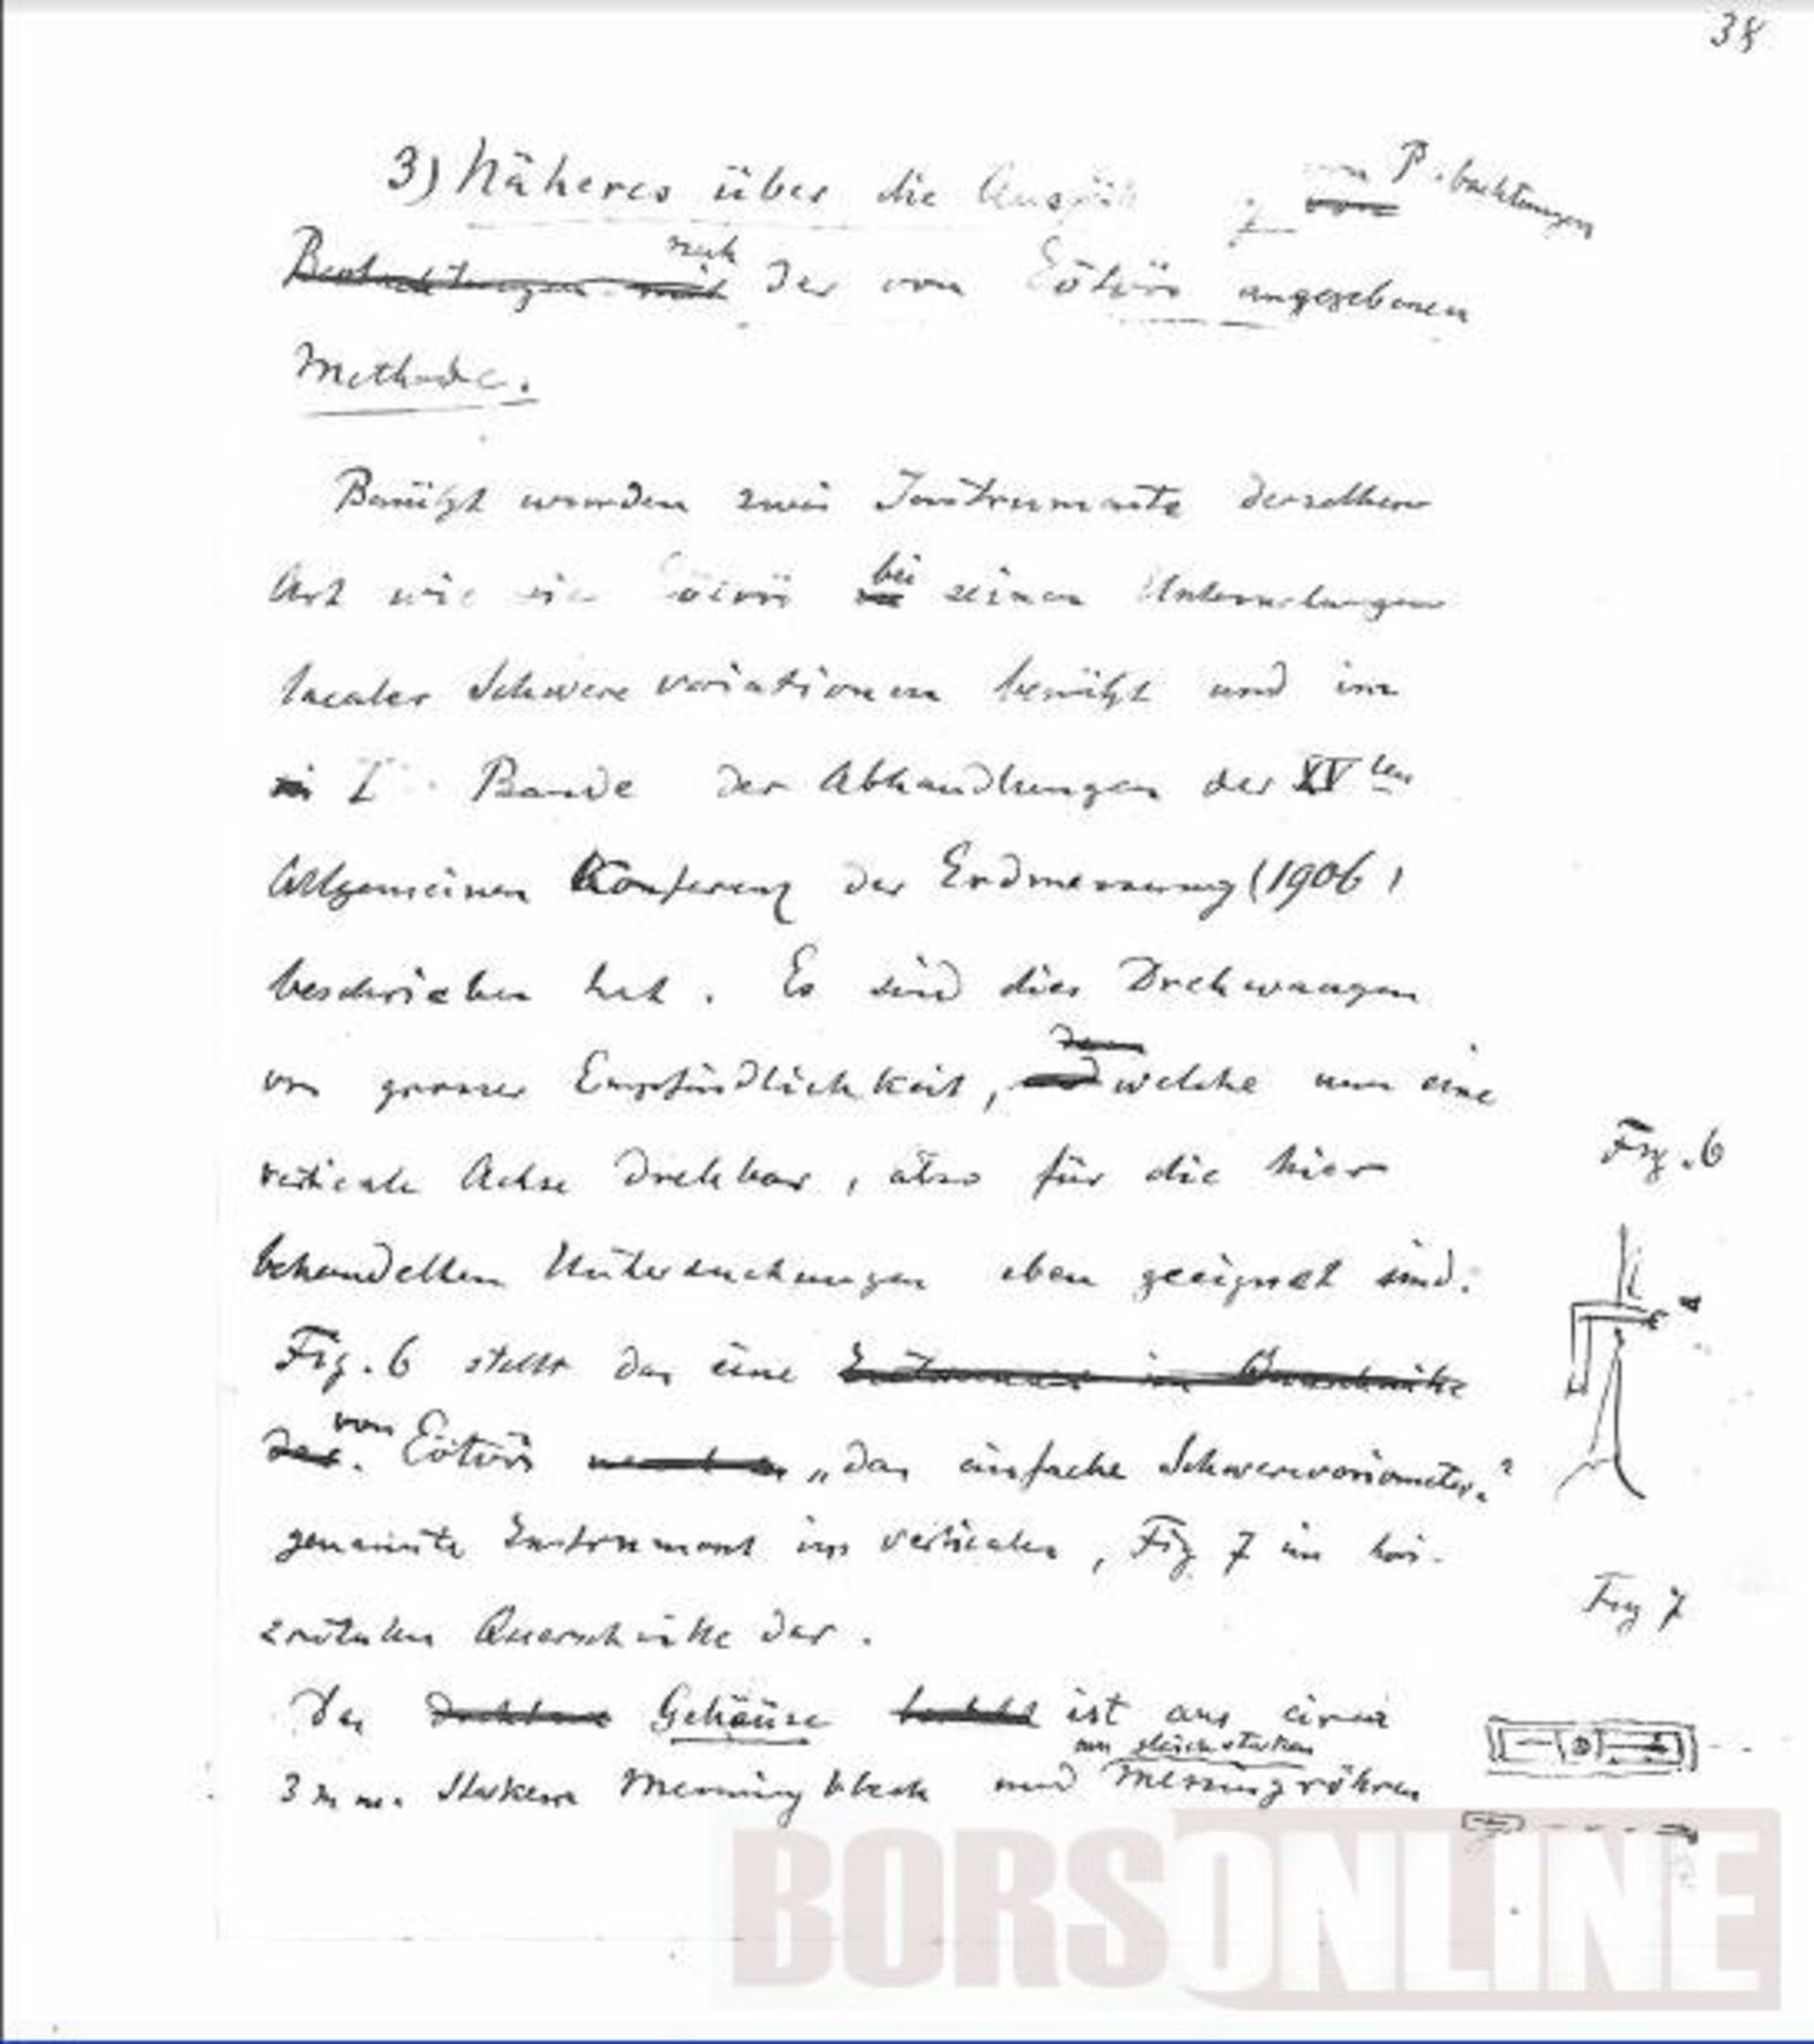 38
3) Näheres über die Beobachtungen
nach
der von Eötvös angegebenen
Methode.
Benützt wurden zwei Instrumente derselben
Art wie sie Eötvös bei seinen
localer Schwere variationen benützt und im
I. Bande der Abhandlungen der XVten
Allgemeinen Konferenz der Erdmessung (1906)
beschrieben hat. Es sind dies Drehwaagen
von grosser Empfindlichkeit, welche um eine
verticale Achse drehbar, also für die hier
behandelten Untersuchungen eben geeignet sind.
Fig. 6 stellt das eine
von Eötvös „das einfache Schwerevariometer"
genannte Instrument im verticalen, Fig 7 im hori-
zontalen Querschnitte dar.
Das Gehäuse ist aus circa
gleich starken
3 mm. starkem Messing blech und Messingröhren
Fig. 6
Fig 7
BORSONLINE